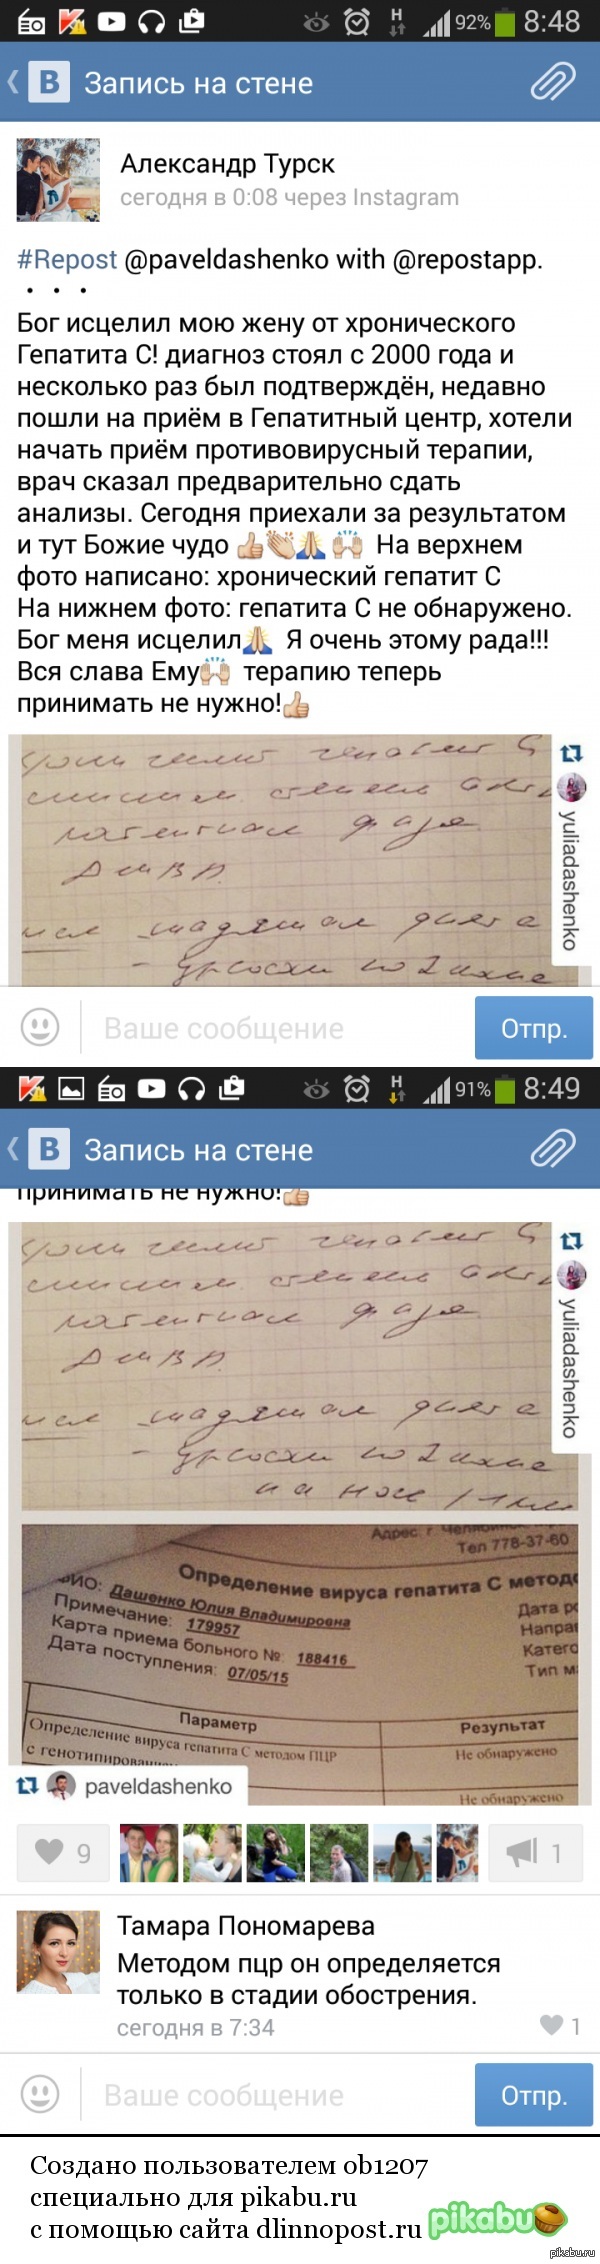 92% 8:48
Запись на стене
Александр Турск
сегодня в 0:08 через Instagram
#Repost @paveldashenko with @repostapp.
· · ·
Бог исцелил мою жену от хронического
Гепатита С! диагноз стоял с 2000 года и
несколько раз был подтверждён, недавно
пошли на приём в Гепатитный центр, хотели
начать приём противовирусный терапии,
врач сказал предварительно сдать
анализы. Сегодня приехали за результатом
и тут Божие чудо 👍👏🙏🙌 На верхнем
фото написано: хронический гепатит С
На нижнем фото: гепатита С не обнаружено.
Бог меня исцелил🙏 Я очень этому рада!!!
Вся слава Ему🙌 терапию теперь
принимать не нужно!👍
гепатит С
фаза
yuliadashenko
Ваше сообщение
Отпр.
91% 8:49
Запись на стене
принимать не нужно!👍
гепатит С
фаза
yuliadashenko
Адрес: г. Челябинск
Тел 778-37-60
Определение вируса гепатита С методо
ФИО: Дашенко Юлия Владимировна
Примечание: 179957
Карта приема больного №: 188416
Дата поступления: 07/05/15
Дата ро
Направ
Катего
Тип м
Параметр
Результат
Определение вируса гепатита С методом ПЦР
Не обнаружено
с генотипирован
Не обнаружено
paveldashenko
9
1
Тамара Пономарева
Методом пцр он определяется
только в стадии обострения.
сегодня в 7:34
1
Ваше сообщение
Отпр.
Создано пользователем ob1207
специально для pikabu.ru
с помощью сайта dlinnopost.ru
pikabu
pikabu.ru